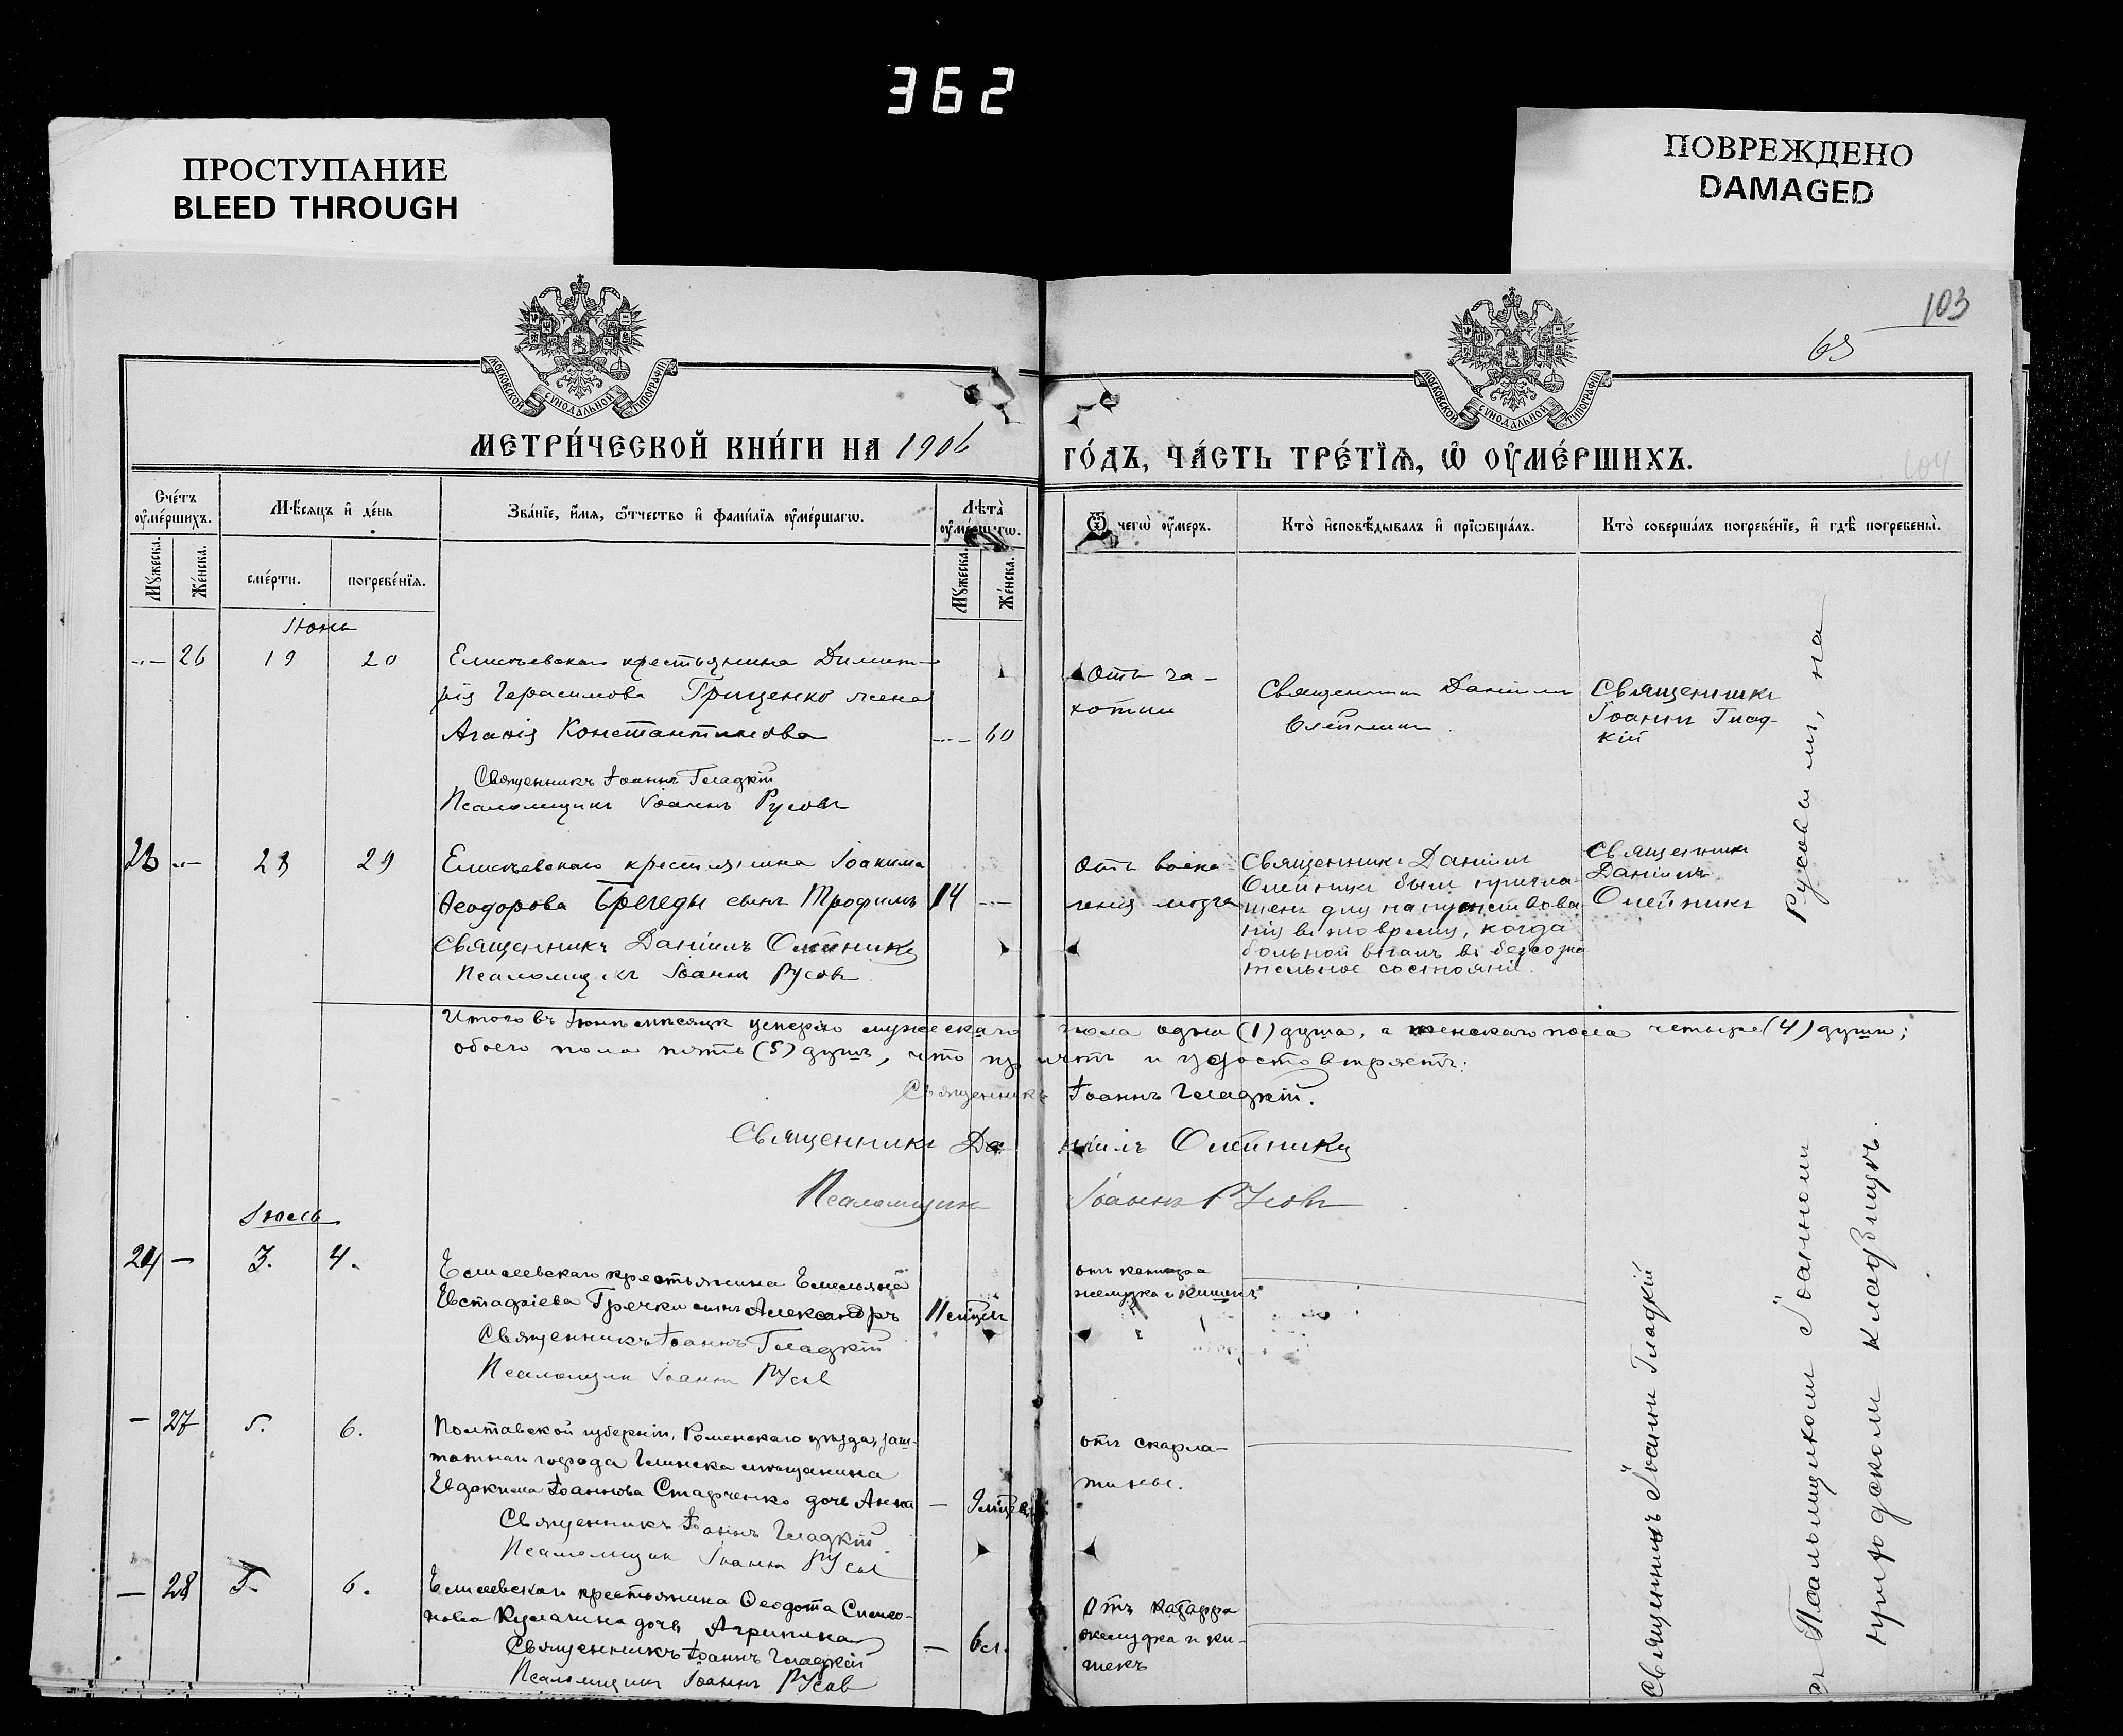 362
ПРОСТУПАНИЕ
BLEED THROUGH
ПОВРЕЖДЕНО
DAMAGED
103
65
МОСКОВСКОЙ СѴНОДАЛЬНОЙ ТИПОГРАФІИ
МОСКОВСКОЙ СѴНОДАЛЬНОЙ ТИПОГРАФІИ
МЕТРИ́ЧЕСКОЙ КНИ́ГИ НА 1906
ГО́ДЪ, ЧА́СТЬ ТРЕ́ТЇѦ, Ѡ҆ ОУ҆МЕ́РШИХЪ.
104
Сче́тъ оу҆ме́ршихъ.
Мѣ́сѧцъ и҆ де́нь
Зва́нїе, и҆́мѧ, ѻ҆́тчество и҆ фами́лїѧ оу҆ме́ршагѡ.
Лѣта̀ оу҆ме́ршагѡ.
Ѿ чегѡ̀ оу҆́меръ.
Кто̀ и҆сповѣ́дывалъ и҆ прїѡбща́лъ.
Кто̀ соверша́лъ погребе́нїе, и҆ гдѣ̀ погребены̀.
Мꙋ́жеска.
Же́нска.
сме́рти.
погребе́нїѧ.
Мꙋ́жеска.
Же́нска.
Іюнь
-- 26 19 20 Елисѣевскаго крестьянина Димит-
рія Герасимова Грищенко жена
Агаѳія Константинова -- 60
Священникъ Іоаннъ Гладкій
Псаломщикъ Іоаннъ Русовъ
Отъ ча-
хотки
Священникъ Даніилъ
Олейникъ.
Священникъ
Іоаннъ Глад-
кій
23 -- 28 29 Елисѣевскаго крестьянина Іоакима
Ѳеодорова Бреgеды сынъ Трофимъ 14 --
Священникъ Даніилъ Олейникъ
Псаломщикъ Іоаннъ Русовъ
Отъ воспа-
ленія мозга
Священникъ Даніилъ
Олейникъ былъ пригла-
шенъ для напутствова-
нія въ то время, когда
больной впалъ въ безсозна
тельное состояніе.
Священникъ
Даніилъ
Олейникъ
Итого въ Іюнѣ мѣсяцѣ умерло мужескаго пола одна (1) душа, а женскаго пола четыре (4) души;
обоего пола пять (5) душъ, что и удостовѣряетъ:
Священникъ Іоаннъ Гладкій.
Священникъ Даніилъ Олейникъ
Псаломщикъ Іоаннъ Русовъ
Іюль
24 — 3. 4. Елисеевскаго крестьянина Емельяна
Евстафіева Гречки сынъ Александръ 11 мѣсяц.
Священникъ Іоаннъ Гладкій
Псаломщикъ Іоаннъ Русовъ
отъ катарра
желудка и кишекъ
— 27 5. 6. Полтавской губерніи, Роменскаго уѣзда, заш-
татнаго города Глинска мѣщанина
Евдокима Іоаннова Старченко дочь Анна — 9 мѣсяц.
Священникъ Іоаннъ Гладкій
Псаломщикъ Іоаннъ Русовъ
отъ скарла-
тины.
— 28 5. 6. Елисеевскаго крестьянина Ѳеодота Симео-
нова Кулагина дочь Агрипина — 6 л.
Священникъ Іоаннъ Гладкій
Псаломщикъ Іоаннъ Русовъ
Отъ катарра
желудка и ки-
шекъ
Священникъ Іоаннъ Гладкій
съ Псаломщикомъ Іоанномъ Русовымъ, на
приходскомъ кладбищѣ.